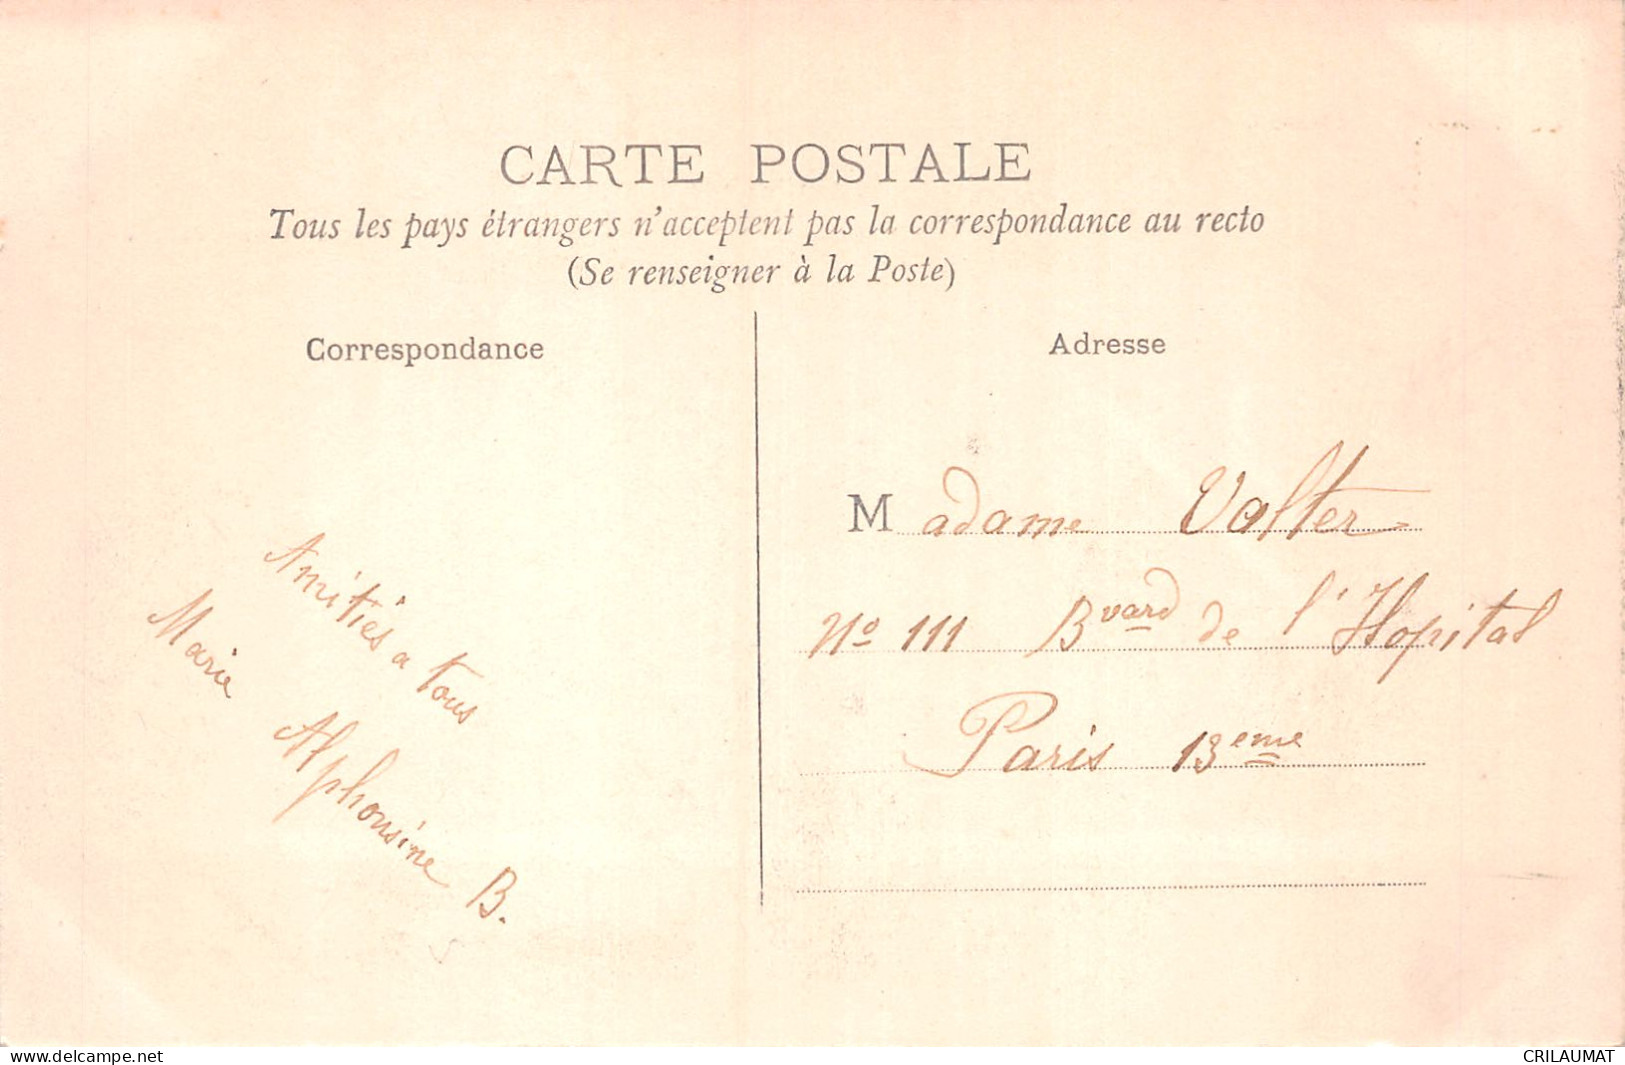 CARTE POSTALE
Tous les pays étrangers n'acceptent pas la correspondance au recto
(Se renseigner à la Poste)
Correspondance
Amitiés a tous
Marie Alphonsine B.
Adresse
Madame Valter
No 111 Bvard de l'Hopital
Paris 13eme
www.delcampe.net
CRILAUMAT